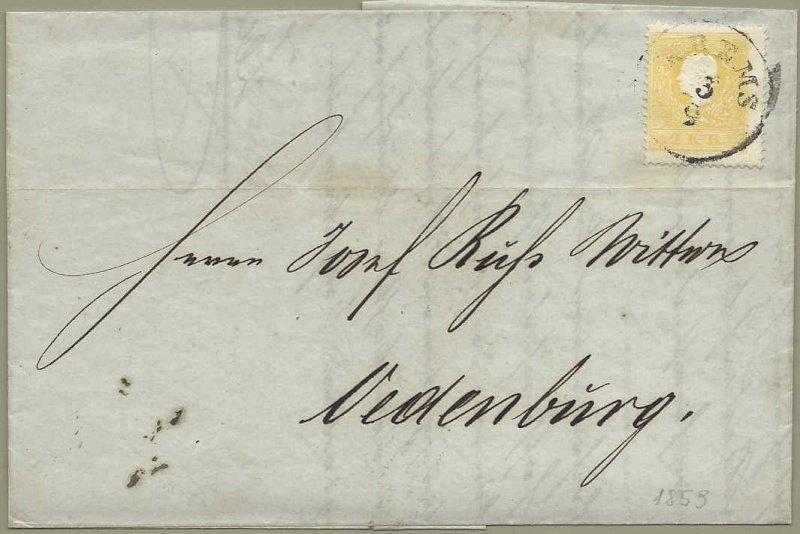 KREMS
3
9
KR
Herrn Josef Russ Wittwe
Oedenburg.
1859